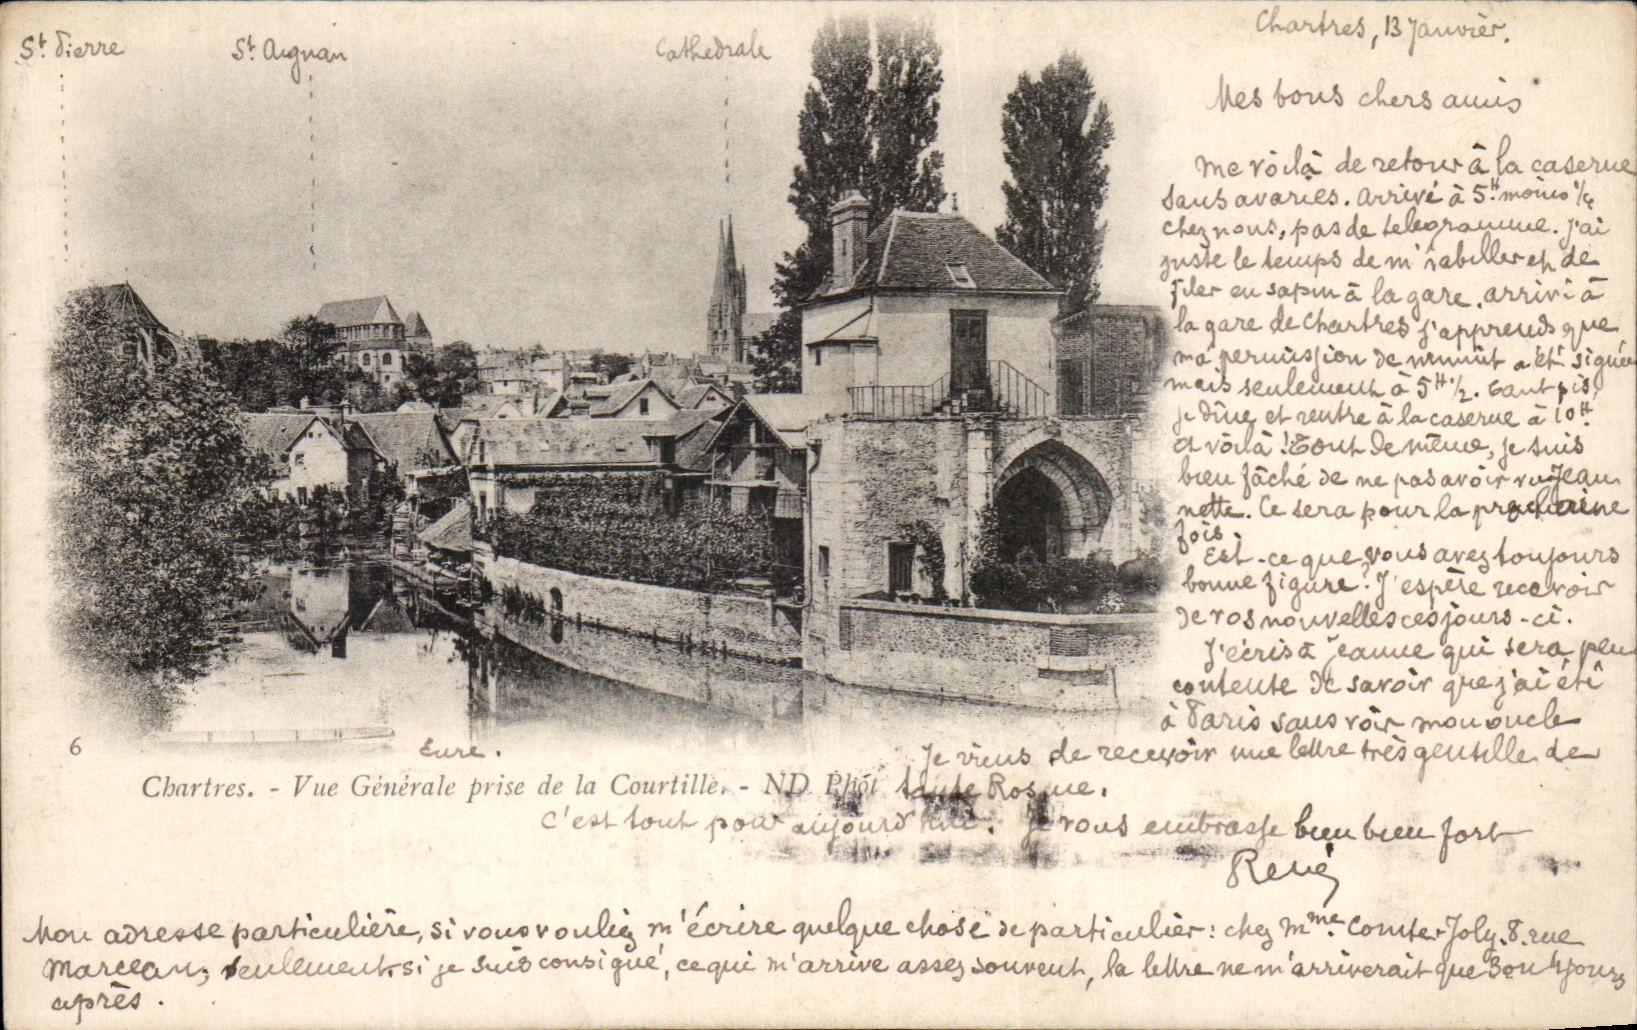 St Pierre
St Aignan
Cathedrale
Chartres, 13 Janvier.
Mes bons chers amis
Me voilà de retour à la caserne
sans avaries. Arrivé à 5H moins 1/4
chez nous, pas de telegramme. J'ai
juste le temps de m'rabiller et de
filer en sapin à la gare. Arrivé à
la gare de Chartres j'apprends que
ma permission de minuit a été signée
mais seulement à 5H 1/2. Tant pis,
je dîne et rentre à la caserne à 10H
et voilà! Tout de même, je suis
bien fâché de ne pas avoir vu Jean
nette. Ce sera pour la prochaine
fois.
Est-ce que vous avez toujours
bonne figure? J'espère recevoir
de vos nouvelles ces jours-ci.
J'écris à Jeanne qui sera peu
contente de savoir que j'ai été
à Paris sans voir mon oncle
Je viens de recevoir une lettre très gentille de
tante Rosine.
6
Eure.
Chartres. - Vue Générale prise de la Courtille. - ND Phot
C'est tout pour aujourd'hui. Je vous embrasse bien bien fort
René
Mon adresse particulière, si vous vouliez m'écrire quelque chose de particulier: chez Mme Comte-Joly. 8. rue
Marceau; seulement si je suis consigné, ce qui m'arrive assez souvent, la lettre ne m'arriverait que 3 ou 4 jours
après.